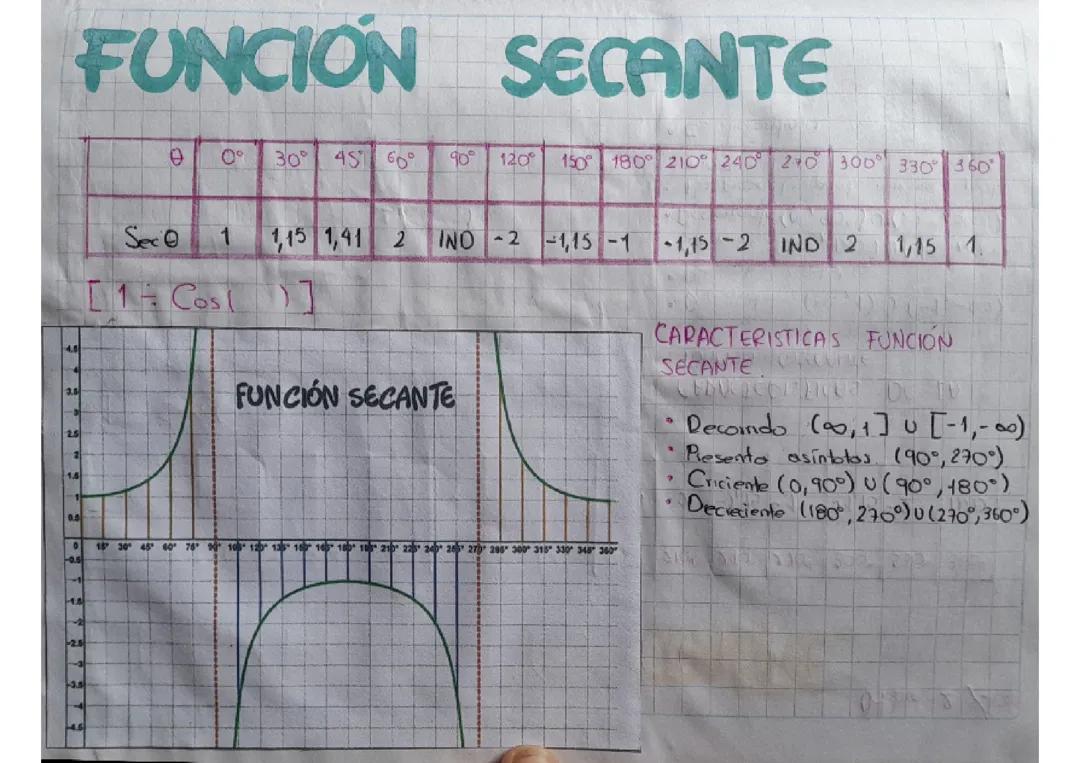 FUNCIÓN SECANTE
θ 0° 30° 45° 60° 90° 120° 150° 180° 210° 240° 270° 300° 330° 360°
Sec θ 1 1,15 1,41 2 IND -2 -1,15 -1 -1,15 -2 IND 2 1,15 1.
[1 ÷ Cos( )]
CARACTERISTICAS FUNCIÓN
SECANTE.
FUNCIÓN SECANTE
• Decoindo (∞,1] U [-1,-∞)
• Presenta asíntotas (90°,270°)
• Criciente (0,90°) U (90°,180°)
• Decreciente (180°,270°) U (270°,360°)
4.5
4
3.5
3
2.5
2
1.5
1
0.5
0 15° 30° 45° 60° 75° 90° 105° 120° 135° 150° 165° 180° 195° 210° 225° 240° 255° 270° 285° 300° 315° 330° 345° 360°
-0.5
-1
-1.5
-2
-2.5
-3
-3.5
-4
-4.5